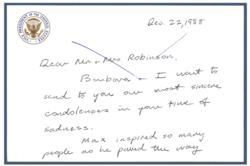 Dec. 22, 1988
Dear Mr. & Mrs. Robinson,
Barbara & I want to
send to you our most sincere
condolences in your time of
sadness.
Max inspired so many
people as he paved the way